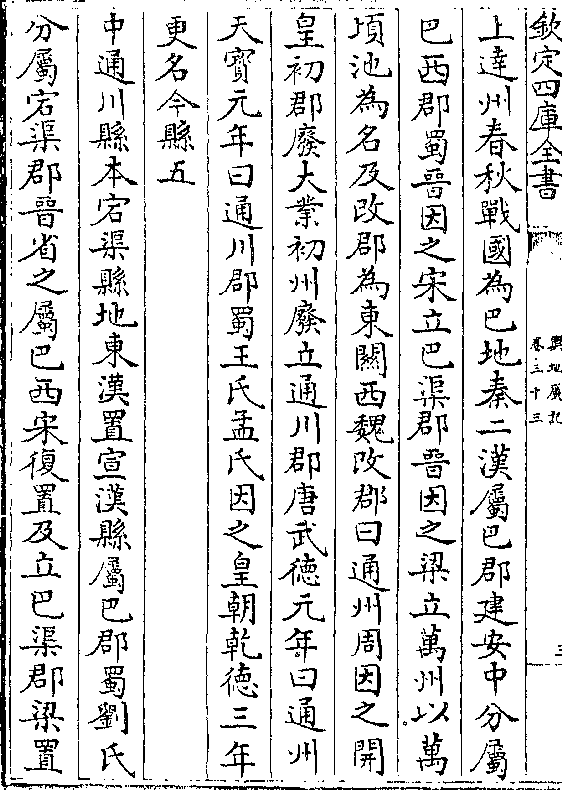 欽定四庫全書
輿地廣記
卷三十三
三
上達州春秋戰國為巴地秦二漢屬巴郡建安中分屬
巴西郡蜀晉因之宋立巴渠郡晉因之梁立萬州以萬
頃池為名及改郡為東關西魏改郡曰通州周因之開
皇初郡廢大業初州廢立通川郡唐武徳元年曰通州
天寶元年曰通川郡蜀王氏孟氏因之皇朝乾徳三年
更名今縣五
中通川縣本宕渠縣地東漢置宣漢縣屬巴郡蜀劉氏
分屬宕渠郡晉省之屬巴西宋復置及立巴渠郡梁置